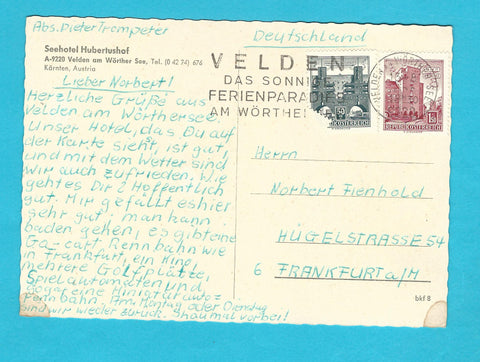 Abs. Dieter Trompeter
Deutschland
Seehotel Hubertushof
A-9220 Velden am Wörther See, Tel. (0 42 74) 676
Kärnten, Austria
VELDEN
DAS SONNI
FERIENPARADIE
AM WÖRTHE
REPUBLIK ÖSTERREICH
REPUBLIK ÖSTERREICH
Lieber Norbert!
Herzliche Grüße aus
Velden am Wörthersee.
Unser Hotel, das Du auf
der Karte siehst, ist gut,
und mit dem Wetter sind
wir auch zufrieden. Wie
gehtes Dir? Hoffentlich
gut. Mir gefällt es hier
sehr gut, man kann
baden gehen, es gibt eine
Go-cart Rennbahn wie
in Frankfurt, ein Kino,
mehrere Golfplätze,
Spielautomaten und
sogar eine Miniaturautoz
rennbahn. Am Montag oder Dienstag
sind wir wieder zurück. Schau mal vorbei!
Herrn
Norbert Fienhold
HÜGELSTRASSE 54
6 FRANKFURT a/M
bkf 8